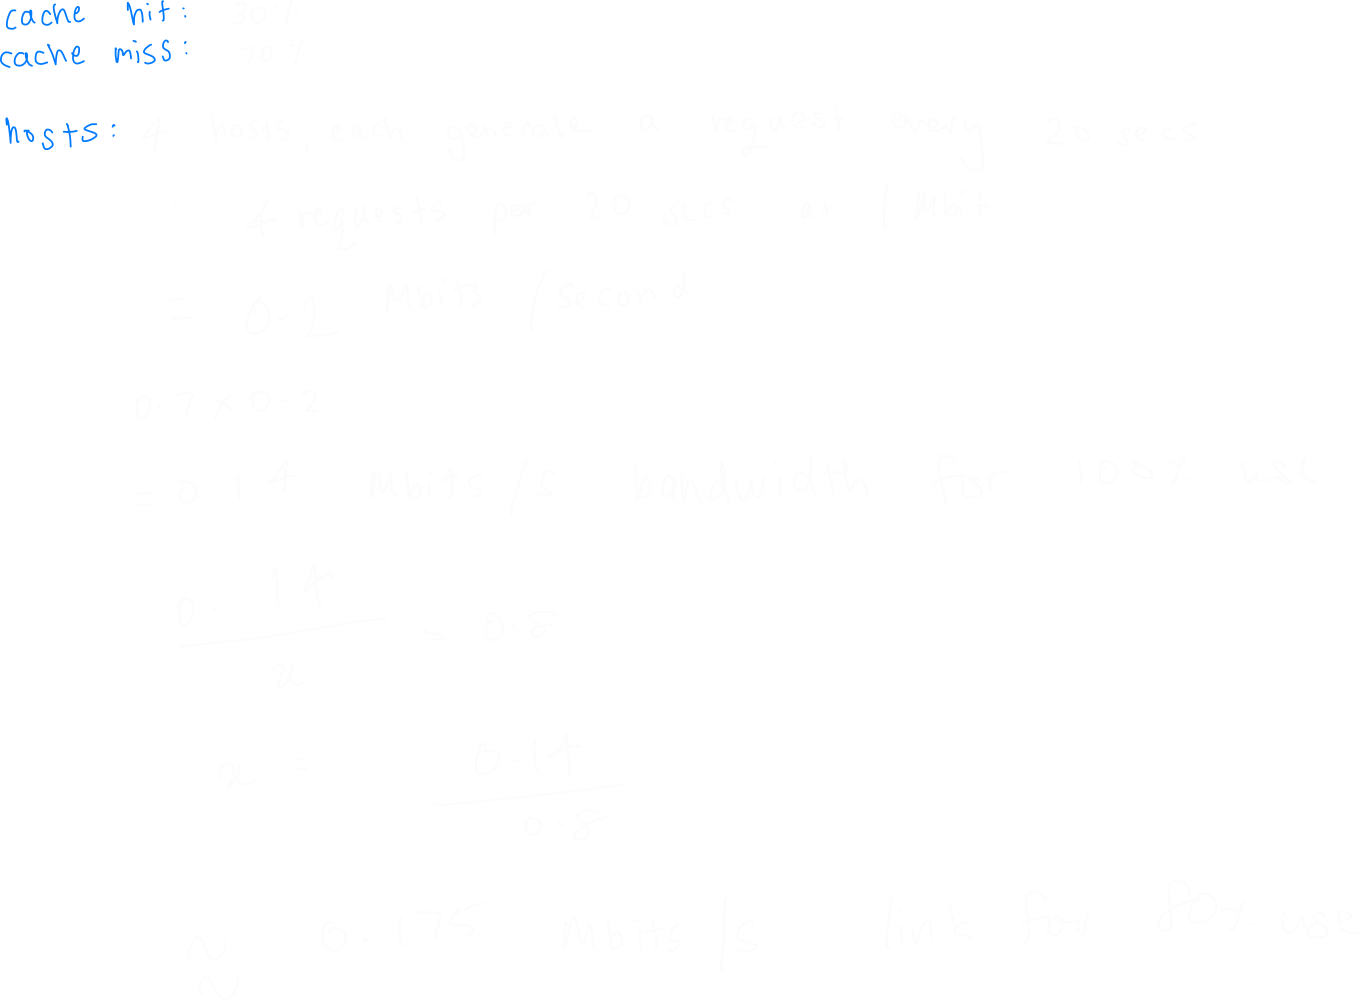 cache hit: 30%
cache miss: 70%
hosts: 4 hosts, each generate a request every 20 secs
4 requests per 20 secs at 1 Mbit
= 0.2 Mbits / second
0.7 x 0.2
= 0.14 Mbits / s bandwidth for 100% use
0.14 / x = 0.8
x = 0.14 / 0.8
≈ 0.175 Mbits / s link for 80% use